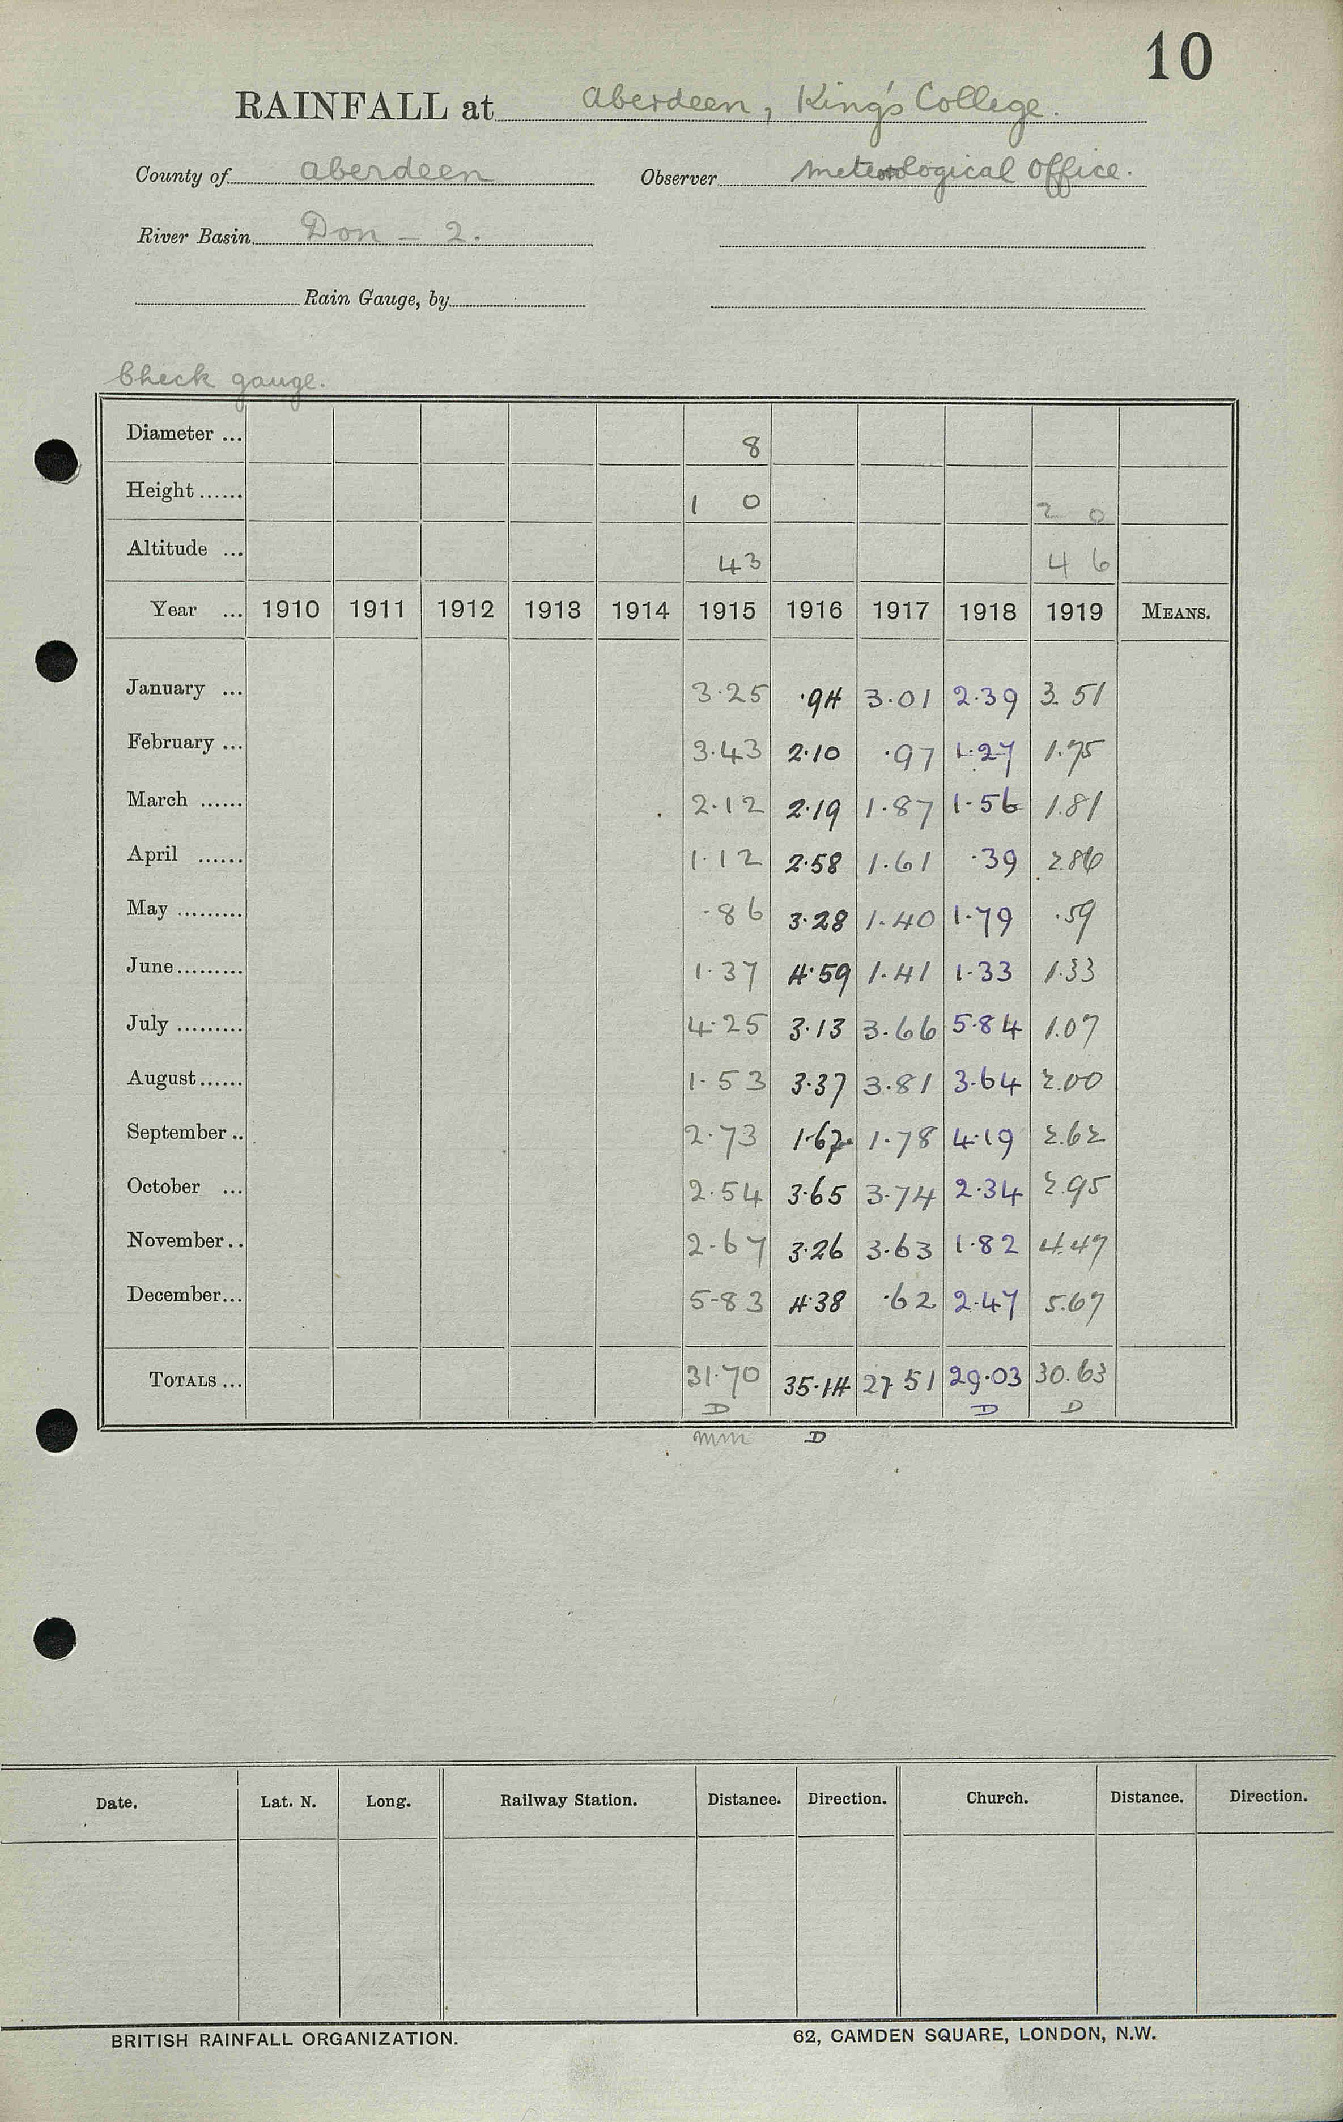 10
RAINFALL at Aberdeen, King's College.
County of Aberdeen Observer Meteorological Office.
River Basin Don - 2.
Rain Gauge, by
Check gauge.
Diameter ... 8
Height ...... 1 0 2 0
Altitude ... 43 46
Year ... 1910 1911 1912 1913 1914 1915 1916 1917 1918 1919 MEANS.
January ... 3.25 .94 3.01 2.39 3.51
February ... 3.43 2.10 .97 1.27 1.75
March ...... 2.12 2.19 1.87 1.56 1.81
April ...... 1.12 2.58 1.61 .39 2.86
May ......... .86 3.28 1.40 1.79 .59
June ......... 1.37 4.59 1.41 1.33 1.33
July ......... 4.25 3.13 3.66 5.84 1.07
August ...... 1.53 3.37 3.81 3.64 2.00
September .. 2.73 1.67 1.78 4.19 2.62
October ... 2.54 3.65 3.74 2.34 2.95
November .. 2.67 3.26 3.63 1.82 4.47
December ... 5.83 4.38 .62 2.47 5.67
TOTALS ... 31.70 35.14 27.51 29.03 30.63
D D D
mm D
Date. Lat. N. Long. Railway Station. Distance. Direction. Church. Distance. Direction.
BRITISH RAINFALL ORGANIZATION. 62, CAMDEN SQUARE, LONDON, N.W.